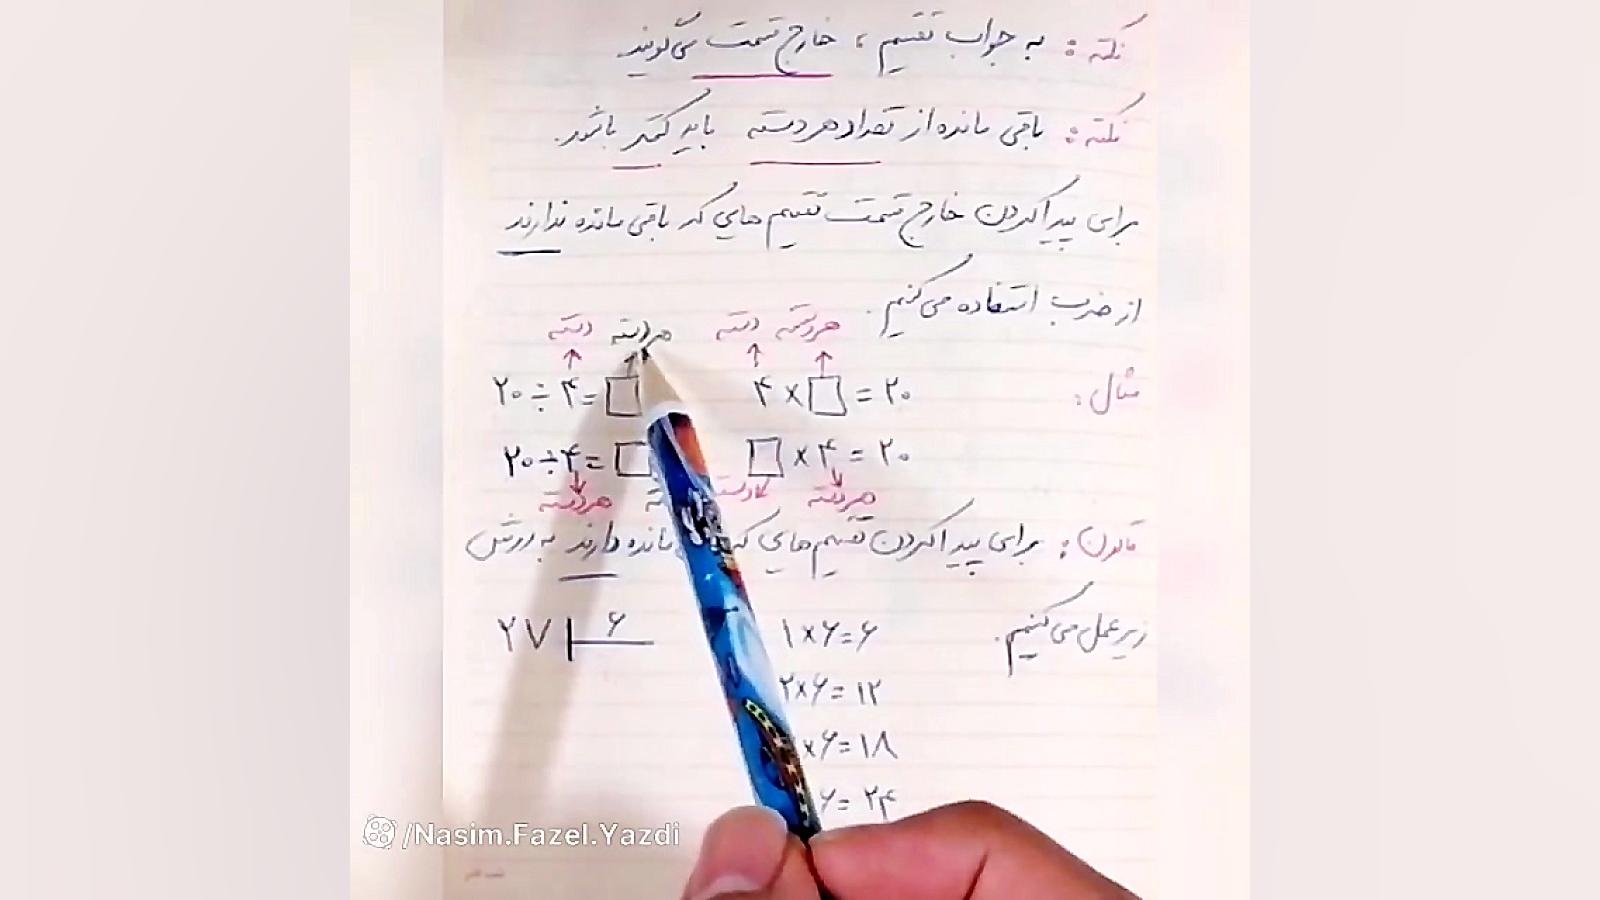 نکته : به جواب تقسیم ، خارج قسمت می‌گویند.
نکته : باقی مانده از تعداد هر دسته باید کمتر باشد.
برای پیدا کردن خارج قسمت تقسیم هایی که باقی مانده ندارند
از ضرب استفاده می‌کنیم.
دسته هر دسته دسته هر دسته
مثال :
۲۰ ÷ ۴ = □ ۴ × □ = ۲۰
۲۰ ÷ ۴ = □ □ × ۴ = ۲۰
هر دسته دسته هر دسته
قانون : برای پیدا کردن تقسیم هایی که مانده دارند به روش
زیر عمل می‌کنیم.
۲۷ ۶ ۱×۶=۶
۲×۶=۱۲
×۶=۱۸
۶=۲۴
/Nasim.Fazel.Yazdi